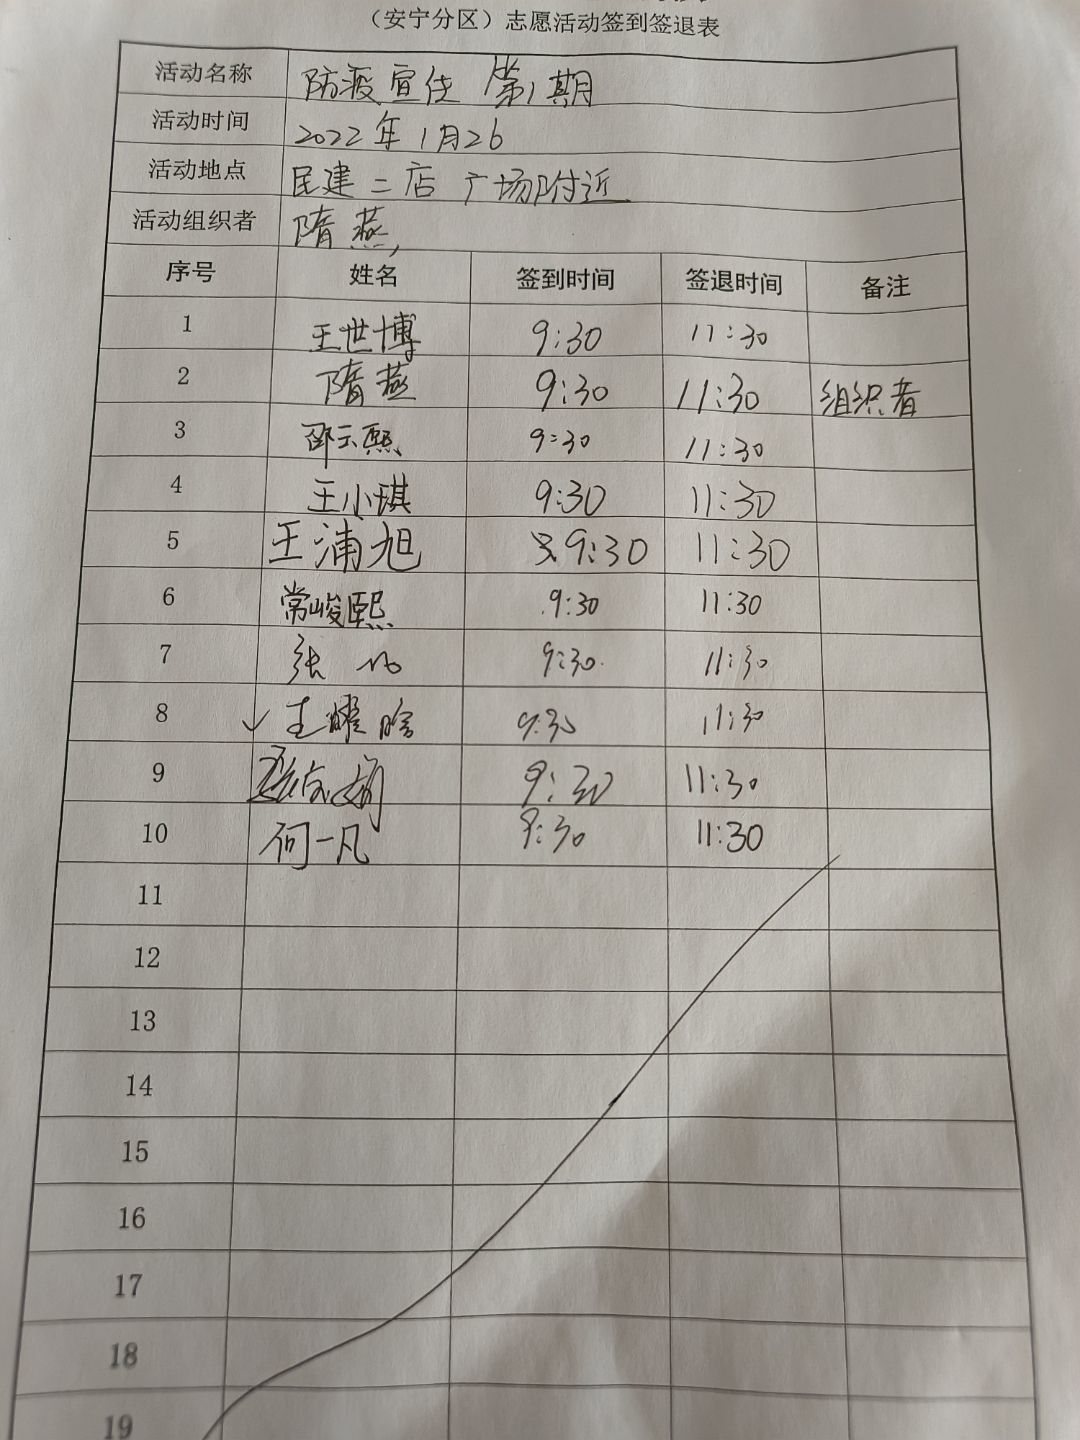 （安宁分区）志愿活动签到签退表
活动名称 防疫宣传 第1期
活动时间 2022年1月26
活动地点 民建二店 广场附近
活动组织者 隋燕
序号 姓名 签到时间 签退时间 备注
1 王世博 9:30 11:30
2 隋燕 9:30 11:30 组织者
3 邵云熙 9:30 11:30
4 王小琪 9:30 11:30
5 王浦旭 9:30 11:30
6 常峻熙 9:30 11:30
7 张 9:30 11:30
8 王耀晗 9:30 11:30
9 9:30 11:30
10 何一凡 9:30 11:30
11
12
13
14
15
16
17
18
19